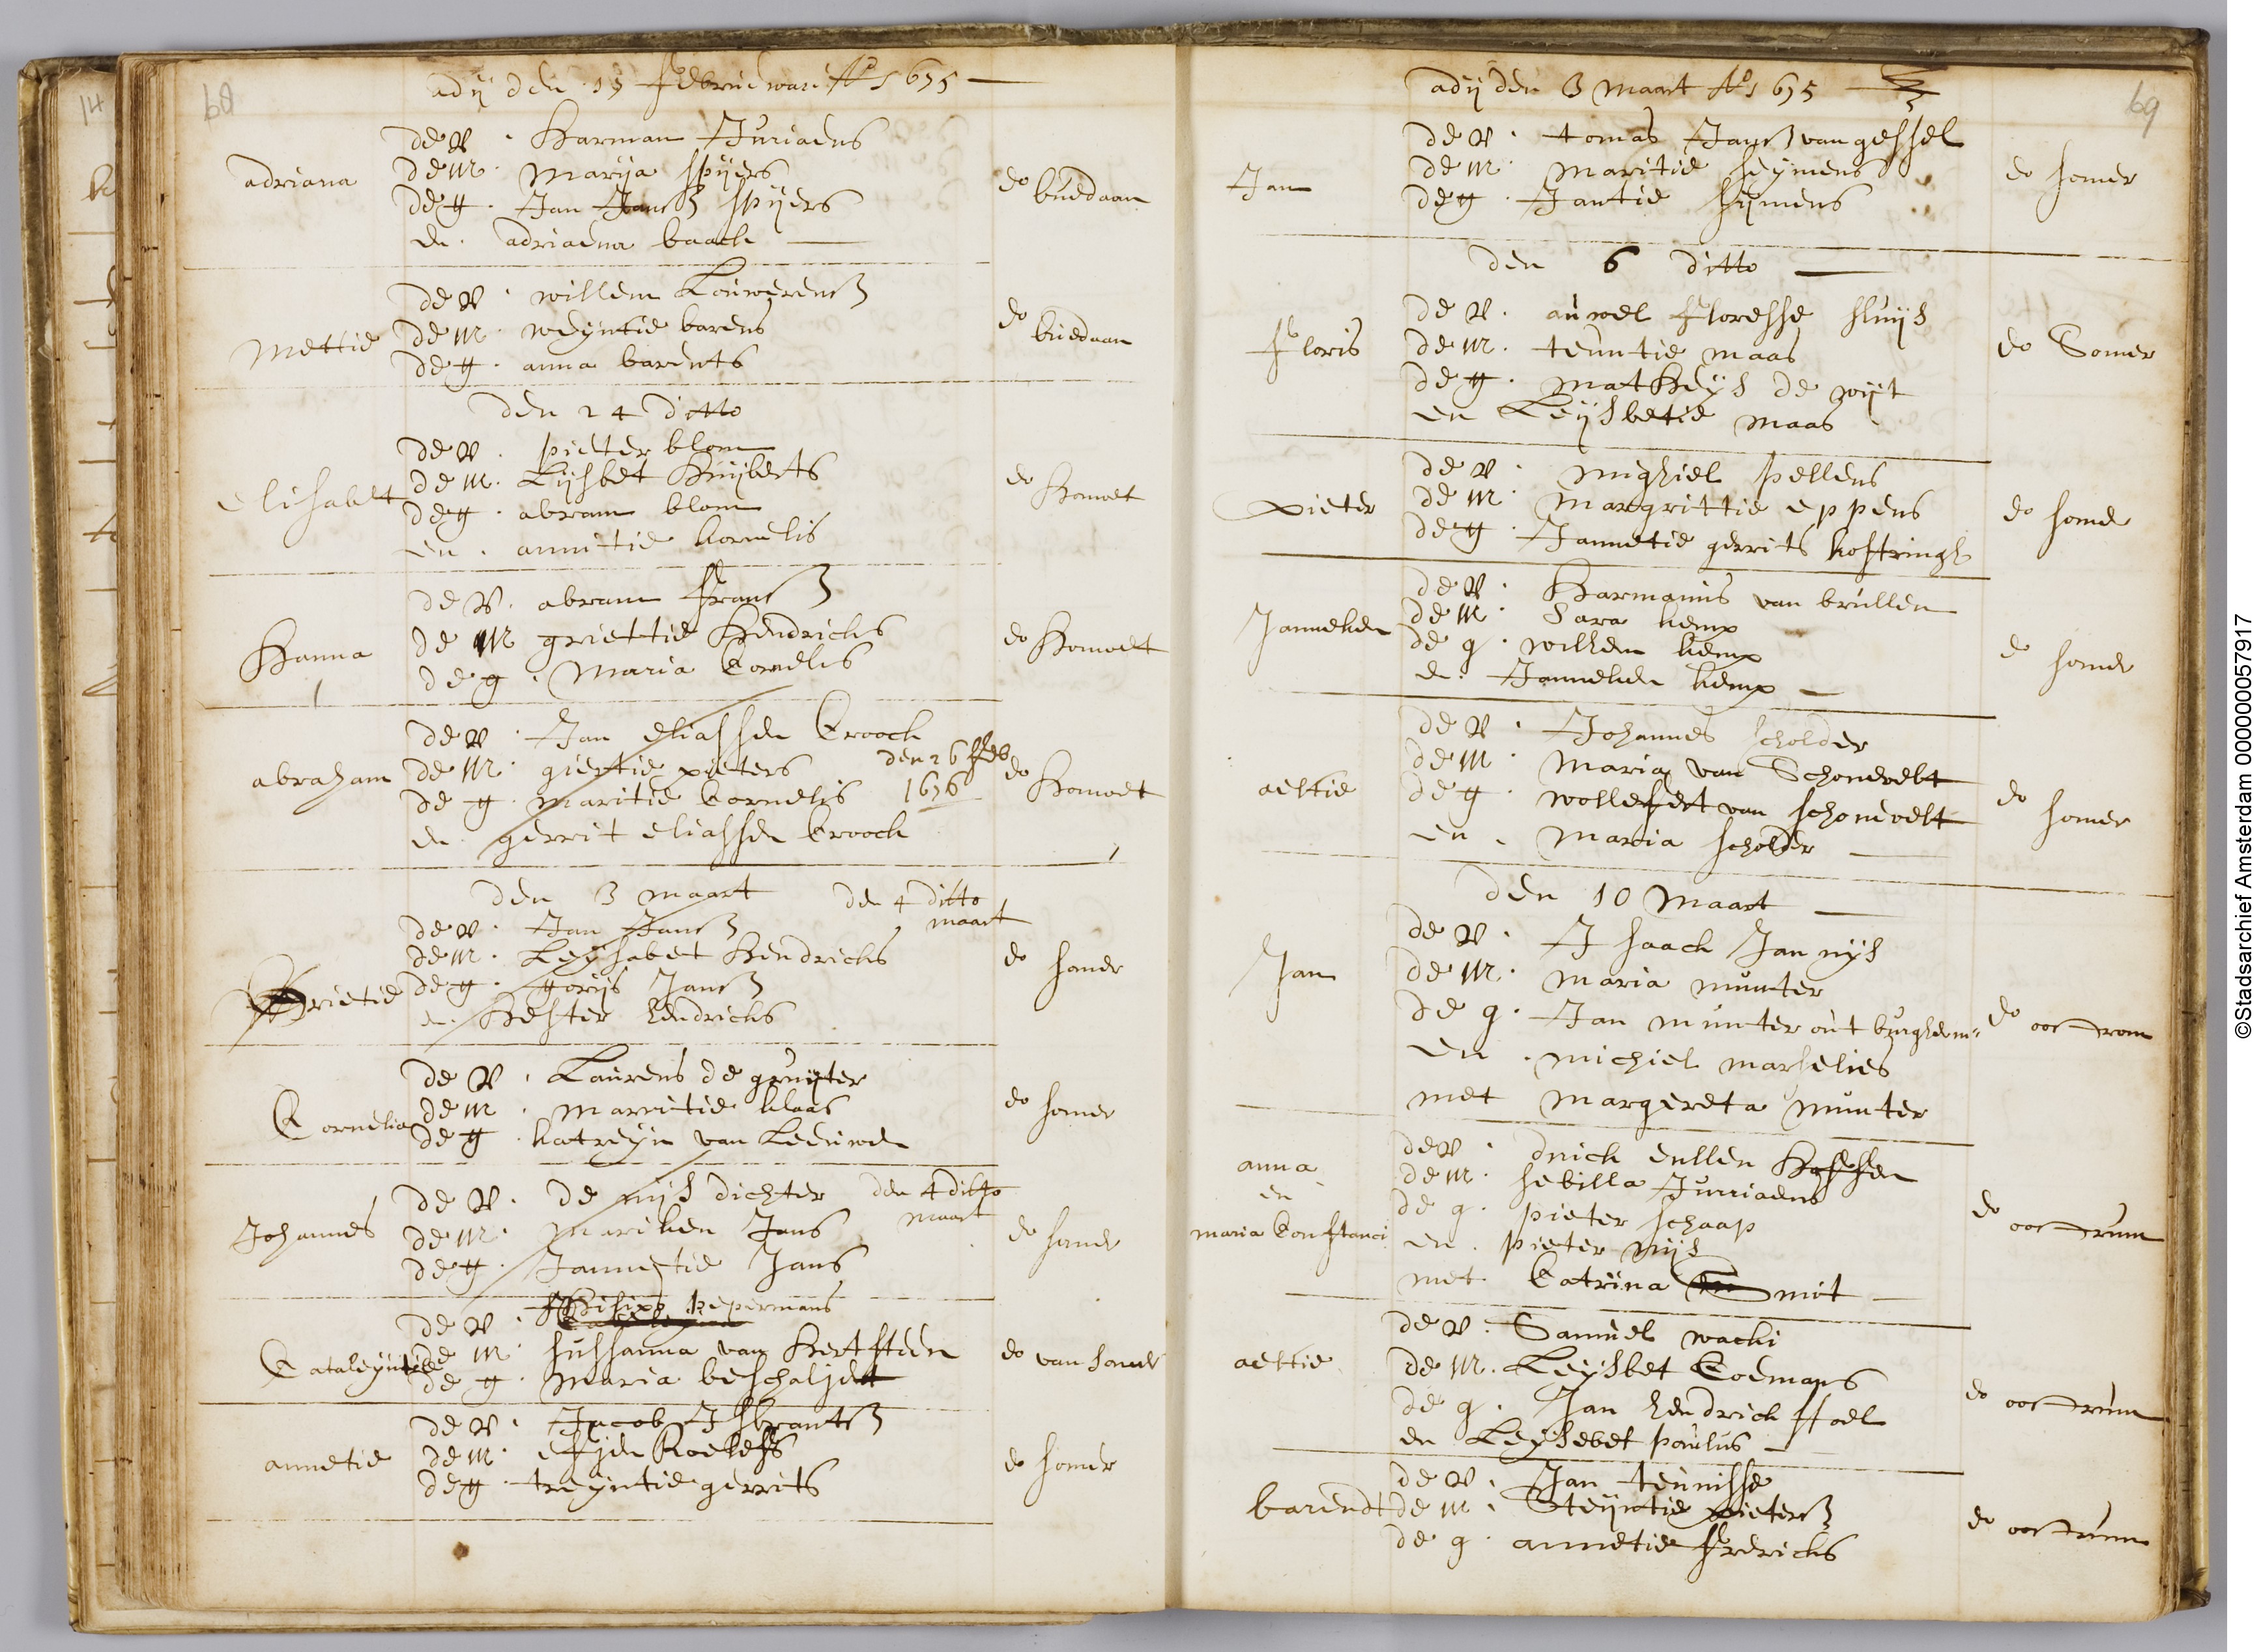 68
ady den 19 Februwari Ao 1675
adriana
de V. Harman Juriaens
de M. Marija Spijers
de G. Jan Jans3 Spijers
en. adriaena baack
do buedaan
Mettie
de V. willem Louwerens3
de M. weijntie barens
de G. anna barents
do buedaan
den 24 ditto
elisabet
de V. pietter blom
de M. Lijsbet Huijberts
de G. abram blom
en. annitie kornelis
do Homoet
Hanna
de V. abram frans3
de M griettie Hendricks
de g. Maria Cornelis
do Homoet
abraham
de V. Jan eliassen Croock
de M. giertie pieters
de G. maritie Cornelis
en gerrit eliassen Croock
den 26 feb
1676
do Homoet
den 3 maart
den 4 ditto
maart
Grietie
de V. Jan Jans3
de M. Leijsabet Hendricks
de G. gorijs Jans3
en. Hester hendricks
do homer
Cornelia
de V. Laurens de gruijter
de M. marritie klaas
de G. katreijn van Leeuwen
do somer
Johannes
de V. de nijs dichter
de M. mariken Jans
de G. Jannetie Jans
den 4 ditto
maart
do somer
Cataleijntie
de V. Philips kepermans
de M. sussanna van Hertsteen
de g. Maria beschaljet
do van somer
annetie
de V. Jacob Isbrants3
de M. efjen Roelefs
de G. treijntie gerrits
do somer
69
adij den 3 maart Ao 1675
Jan
de V. tomas Jans3 van gessel
de M. maritie seijmens
de G. Jantie sijmens
do somer
den 6 ditto
floris
de V. auwel floresse sluijs
de M. teuntie maas
de G. matheijs de wijt
en Leijsbetie maas
do Somer
pieter
de V. mighiel pellens
de M. margrittie eppens
de G. Jannetie gerrits kostringh
do somer
Janneken
de V. Harmanus van brullen
de M. Sara kemp
de g. willem kemp
en. Janneken kemp
do somer
aeltie
de V. Johannes scholder
de M. Maria van Schonevelt
de G. wollefert van schonevelt
en. Maria scholder
do somer
den 10 Maart
Jan
de V. Isaack Jan nijs
de M. maria munter
de g. Jan munter out burgherm:
en. michiel marselies
met margereta munter
do oostrom
anna
en
maria Constanci
de V. dirick eullen
de M. sebilla Jurriaens
de g. pieter schaap
en. pieter nijs
met Catrina Smit
do oostrum
aeltie
de V. Samuel wacki
de M. Leijsbet Coemans
de g. Jan hendrick stoel
en Leijsebet paulus
do oostrum
barendt
de V. Jan teunisse
de M. Steijntie pieters3
de g. annetie fredricks
do oostrum
©Stadsarchief Amsterdam 000000057917